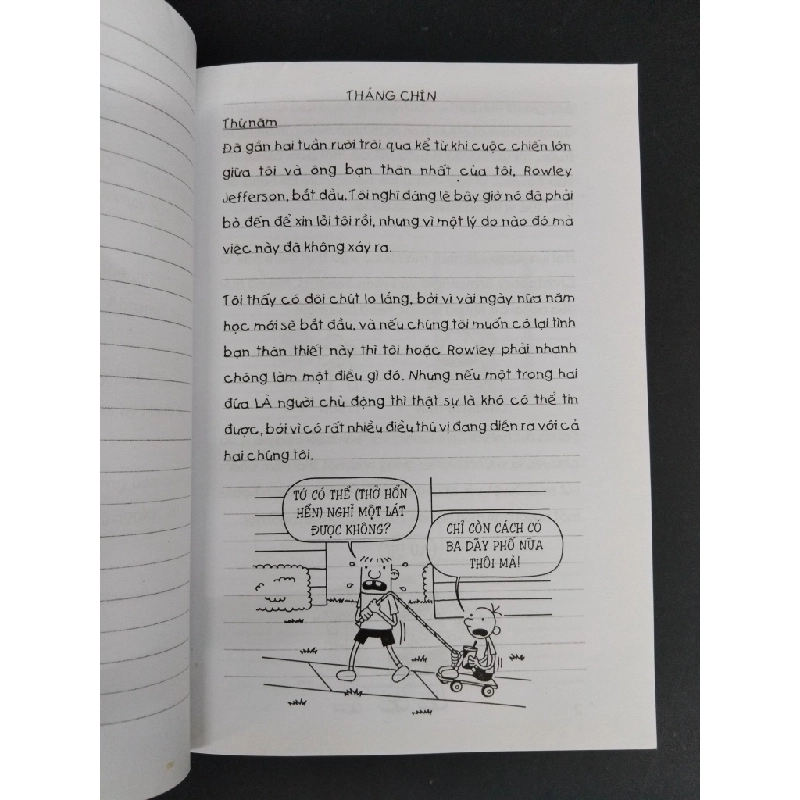 THÁNG CHÍN
Thứ năm
Đã gần hai tuần rưỡi trôi qua kể từ khi cuộc chiến lớn
giữa tôi và ông bạn thân nhất của tôi, Rowley
Jefferson, bắt đầu. Tôi nghĩ đáng lẽ bây giờ nó đã phải
bò đến để xin lỗi tôi rồi, nhưng vì một lý do nào đó mà
việc này đã không xảy ra.
Tôi thấy có đôi chút lo lắng, bởi vì vài ngày nữa năm
học mới sẽ bắt đầu, và nếu chúng tôi muốn có lại tình
bạn thân thiết này thì tôi hoặc Rowley phải nhanh
chóng làm một điều gì đó. Nhưng nếu một trong hai
đứa LÀ người chủ động thì thật sự là khó có thể tin
được, bởi vì có rất nhiều điều thú vị đang diễn ra với cả
hai chúng tôi.
TỚ CÓ THỂ (THỞ HỔN
HỂN) NGHỈ MỘT LÁT
ĐƯỢC KHÔNG?
CHỈ CÒN CÁCH CÓ
BA DÃY PHỐ NỮA
THÔI MÀ!